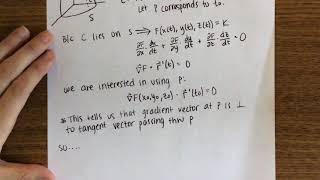 S
Let P corresponds to to.
B/c C lies on S ⟹ F(x(t), y(t), z(t)) = K
∂F/∂x · dx/dt + ∂F/∂y · dy/dt + ∂F/∂z · dz/dt = 0
∇F · r'(t) = 0
we are interested in using P:
∇F(x₀, y₀, z₀) · r'(t₀) = 0
* This tells us that gradient vector at P is ⊥
to tangent vector passing thru P
so....